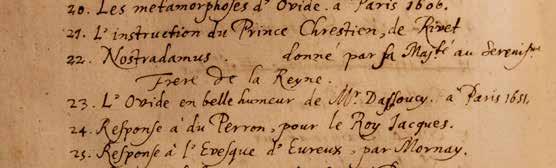 20. Les metamorphoses d'Ovide. à Paris 1606.
21. L'instruction du Prince Chrestien, de Rivet
22. Nostradamus. donné par sa Maj.té au Sereniss.e
Frere de la Reyne.
23. L'Ovide en belle humeur de Mr. Dassoucy. à Paris 1651.
24. Response à du Perron, pour le Roy Jacques.
25. Response à l'Evesque d'Eureux, par Mornay.